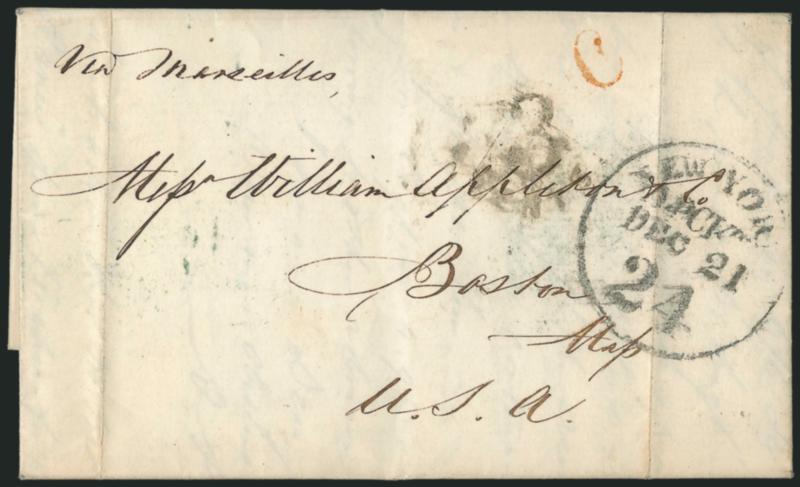 Via Marseilles,
C
Messrs William Appleton & Co.
Boston
Mass
U.S.A.
NEW YORK
PACKT
DEC 21
24